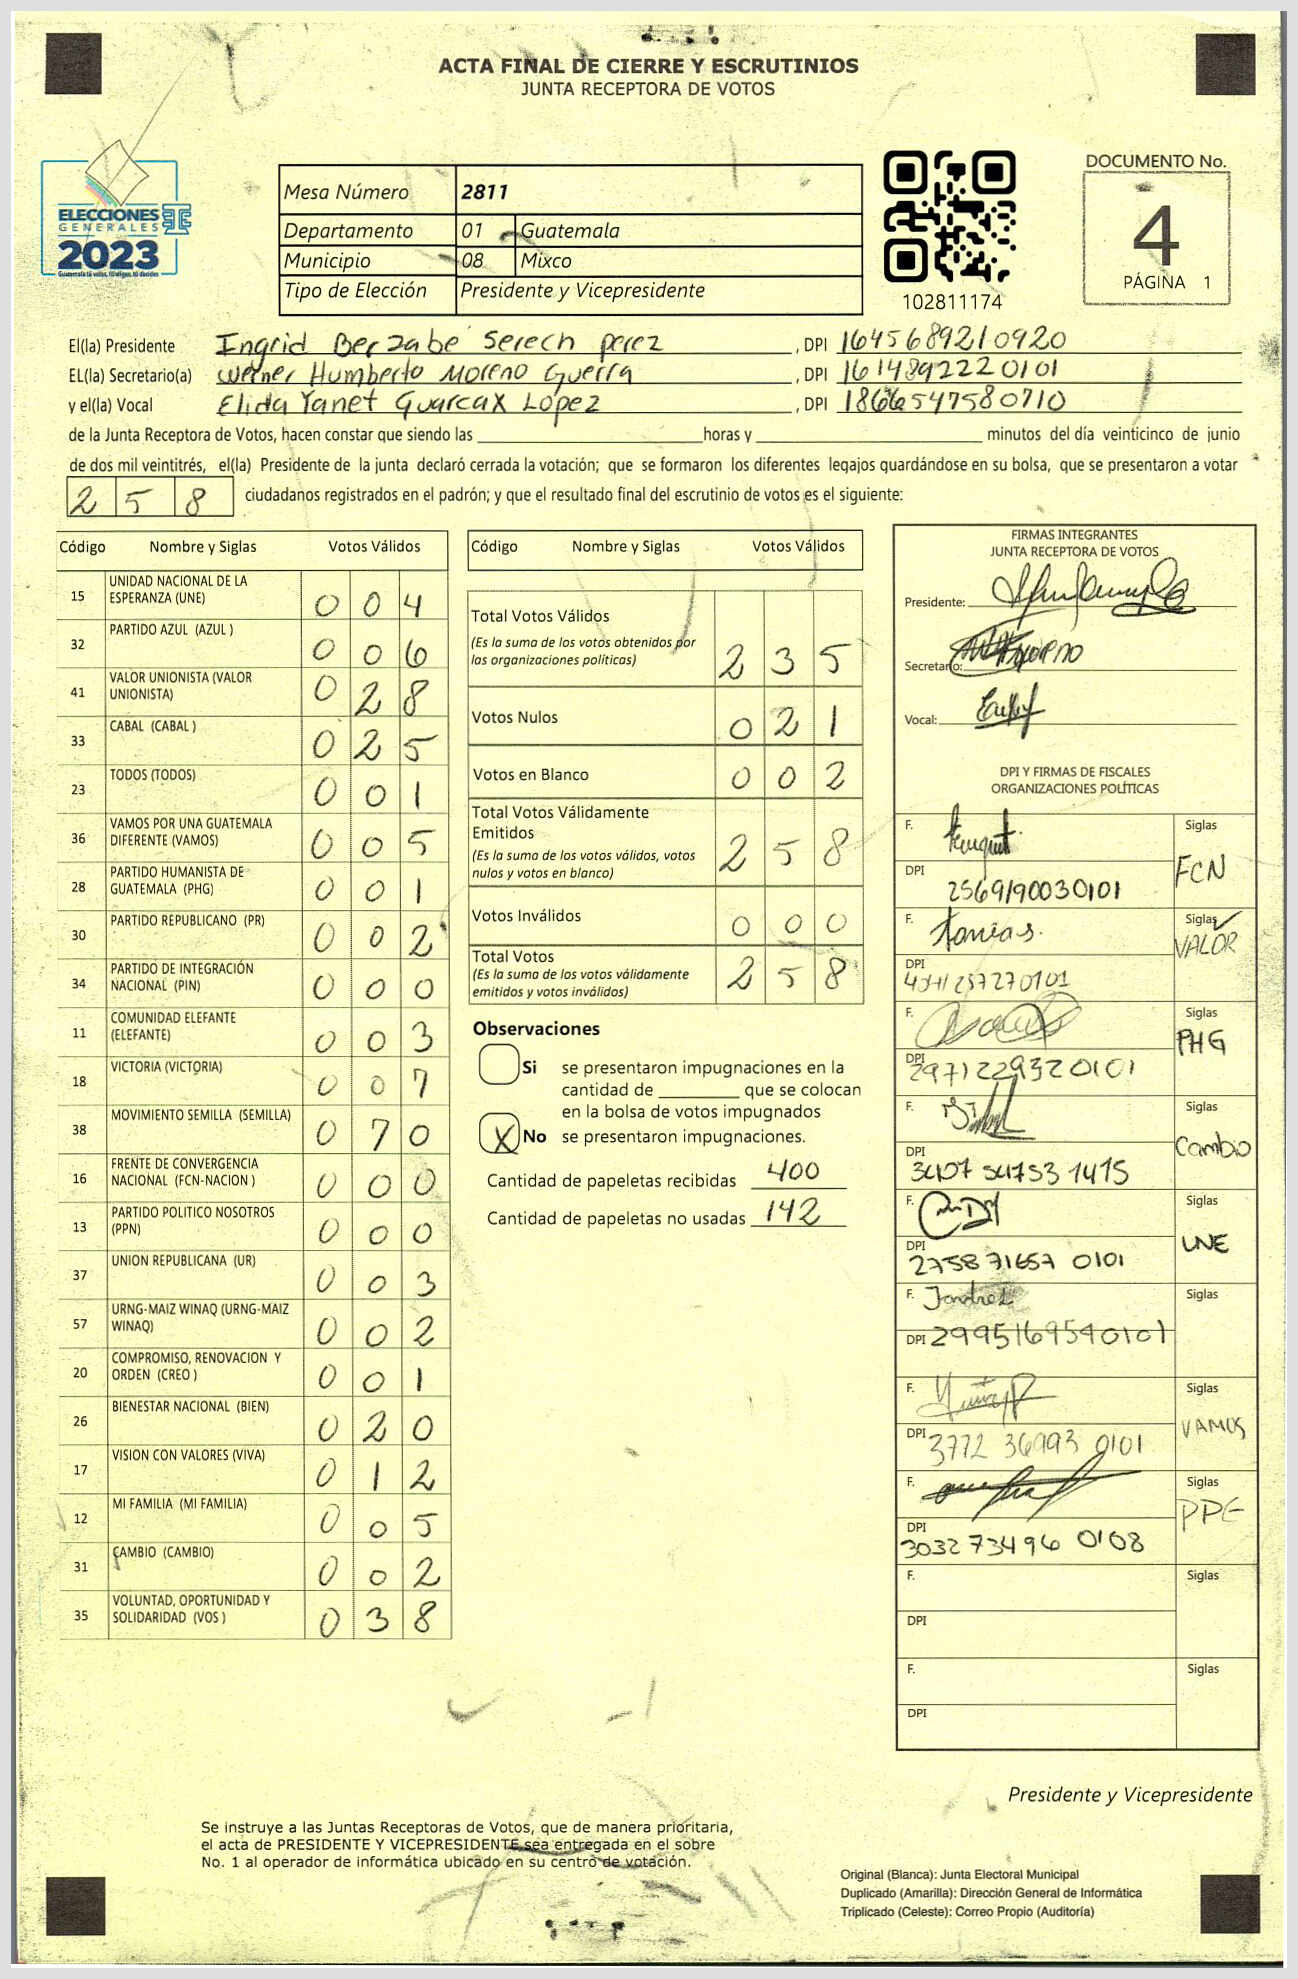 ACTA FINAL DE CIERRE Y ESCRUTINIOS
JUNTA RECEPTORA DE VOTOS
ELECCIONES
GENERALES
2023
Mesa Número 2811
Departamento 01 Guatemala
Municipio 08 Mixco
Tipo de Elección Presidente y Vicepresidente
102811174
DOCUMENTO No.
4
PÁGINA 1
El(la) Presidente Ingrid Berzabe Serech perez, DPI 1645689210920
EL(la) Secretario(a) Werner Humberto Moreno Guerra, DPI 1614892220101
y el(la) Vocal Elida Yanet Guarcax López, DPI 1866547580710
de la Junta Receptora de Votos, hacen constar que siendo las horas y minutos del día veinticinco de junio
de dos mil veintitrés, el(la) Presidente de la junta declaró cerrada la votación; que se formaron los diferentes legajos guardándose en su bolsa, que se presentaron a votar
258 ciudadanos registrados en el padrón; y que el resultado final del escrutinio de votos es el siguiente:
Código Nombre y Siglas Votos Válidos
15 UNIDAD NACIONAL DE LA ESPERANZA (UNE) 004
32 PARTIDO AZUL (AZUL ) 006
41 VALOR UNIONISTA (VALOR UNIONISTA) 028
33 CABAL (CABAL ) 025
23 TODOS (TODOS) 001
36 VAMOS POR UNA GUATEMALA DIFERENTE (VAMOS) 005
28 PARTIDO HUMANISTA DE GUATEMALA (PHG) 001
30 PARTIDO REPUBLICANO (PR) 002
34 PARTIDO DE INTEGRACIÓN NACIONAL (PIN) 000
11 COMUNIDAD ELEFANTE (ELEFANTE) 003
18 VICTORIA (VICTORIA) 007
38 MOVIMIENTO SEMILLA (SEMILLA) 070
16 FRENTE DE CONVERGENCIA NACIONAL (FCN-NACION ) 000
13 PARTIDO POLITICO NOSOTROS (PPN) 000
37 UNION REPUBLICANA (UR) 003
57 URNG-MAIZ WINAQ (URNG-MAIZ WINAQ) 002
20 COMPROMISO, RENOVACION Y ORDEN (CREO ) 001
26 BIENESTAR NACIONAL (BIEN) 020
17 VISION CON VALORES (VIVA) 012
12 MI FAMILIA (MI FAMILIA) 005
31 CAMBIO (CAMBIO) 002
35 VOLUNTAD, OPORTUNIDAD Y SOLIDARIDAD (VOS ) 038
Código Nombre y Siglas Votos Válidos
Total Votos Válidos 235
(Es la suma de los votos obtenidos por
las organizaciones políticas)
Votos Nulos 021
Votos en Blanco 002
Total Votos Válidamente
Emitidos 258
(Es la suma de los votos válidos, votos
nulos y votos en blanco)
Votos Inválidos 000
Total Votos 258
(Es la suma de los votos válidamente
emitidos y votos inválidos)
Observaciones
Si se presentaron impugnaciones en la
cantidad de que se colocan
en la bolsa de votos impugnados
X No se presentaron impugnaciones.
Cantidad de papeletas recibidas 400
Cantidad de papeletas no usadas 142
FIRMAS INTEGRANTES
JUNTA RECEPTORA DE VOTOS
Presidente:
Secretario:
Vocal:
DPI Y FIRMAS DE FISCALES
ORGANIZACIONES POLÍTICAS
F. Siglas
DPI 2569190030101 FCN
F. Siglas
DPI VALOR
F. Siglas
DPI 2971229320101 PHG
F. Siglas
DPI 3407547531415 Cambio
F. Siglas
DPI 2758716570101 UNE
F. Siglas
DPI 2995169540101
F. Siglas
DPI 3772369930101 VAMOS
F. Siglas
DPI 3032734960108
F. Siglas
DPI
F. Siglas
DPI
Presidente y Vicepresidente
Se instruye a las Juntas Receptoras de Votos, que de manera prioritaria,
el acta de PRESIDENTE Y VICEPRESIDENTE sea entregada en el sobre
No. 1 al operador de informática ubicado en su centro de votación.
Original (Blanca): Junta Electoral Municipal
Duplicado (Amarilla): Dirección General de Informática
Triplicado (Celeste): Correo Propio (Auditoría)